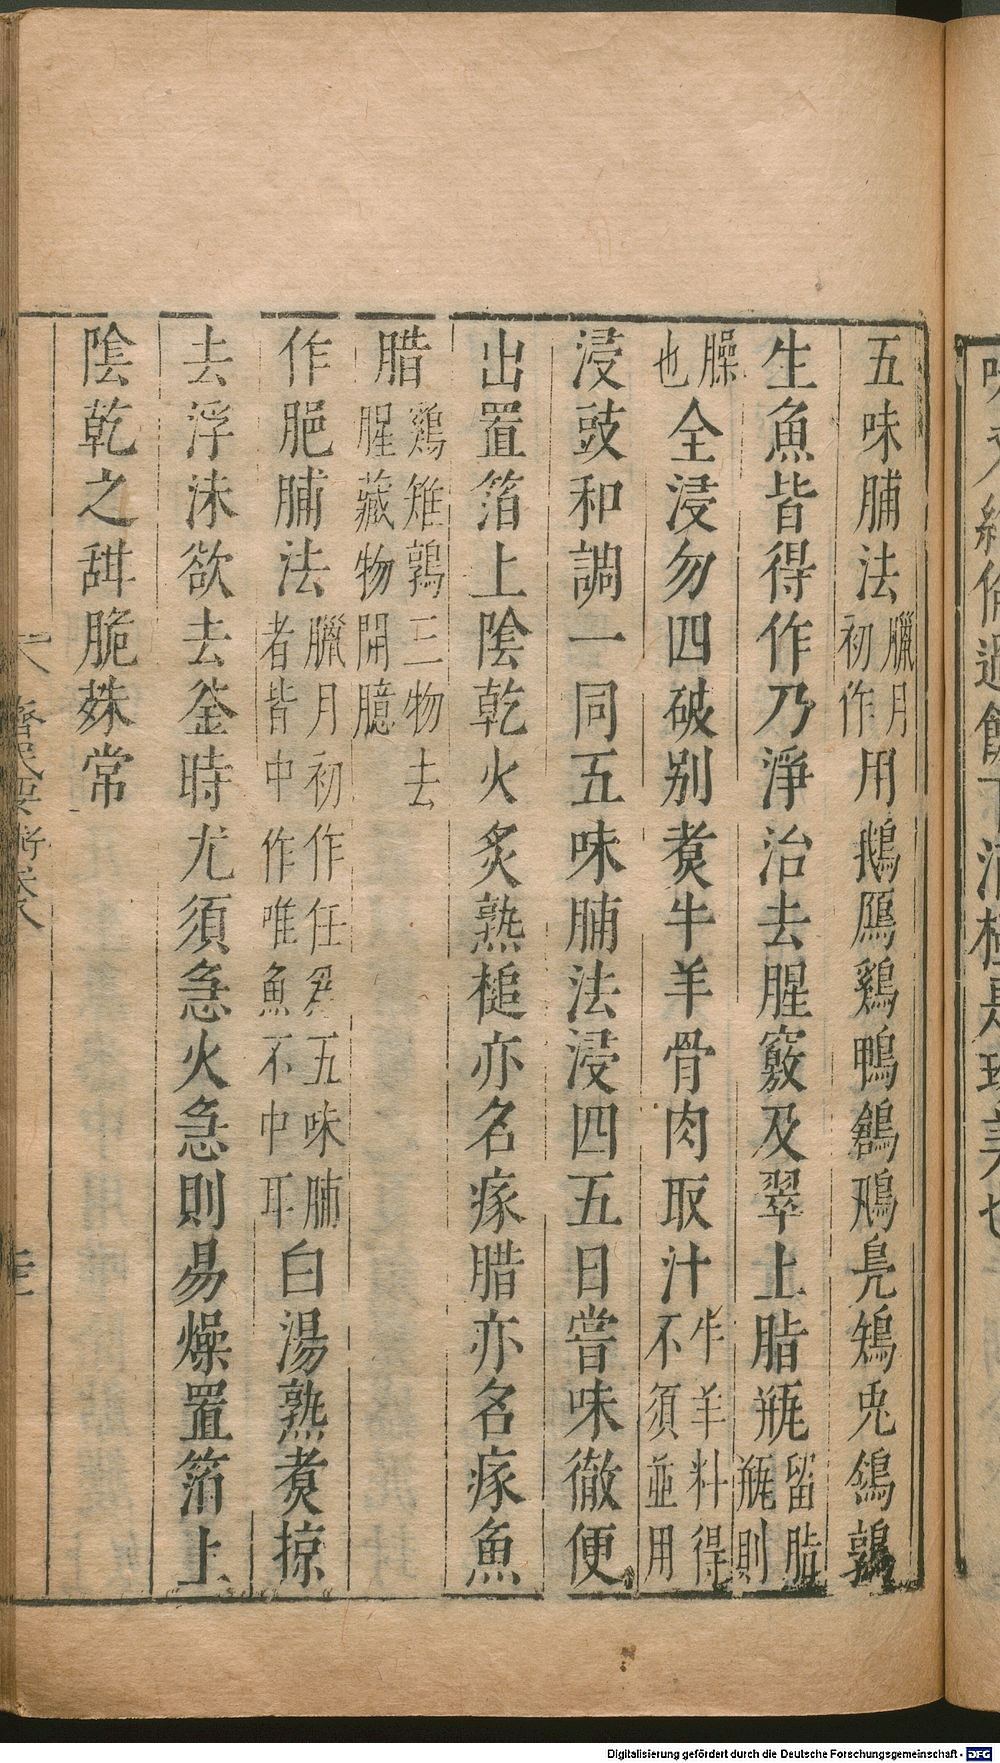 五味脯法臘月初作用鵝鴈鷄鴨鶬鳵鳧雉兎鴿鶉
生魚皆得作乃淨治去腥竅及翠上脂瓶留脂瓶則
臊也全浸勿四破别煑牛羊骨肉取汁牛羊料得不須並用
浸豉和調一同五味脯法浸四五日嘗味徹便
出置箔上陰乾火炙熟槌亦名瘃腊亦名瘃魚
腊鷄雉鶉三物去腥藏物開臆
作脃脯法臘月初作任爲五味脯者皆中作唯魚不中耳白湯熟煑掠
去浮沫欲去釜時尤須急火急則易燥置箔上
陰乾之甜脆姝常
齊民要術卷八
Digitalisierung gefördert durch die Deutsche Forschungsgemeinschaft - DFG